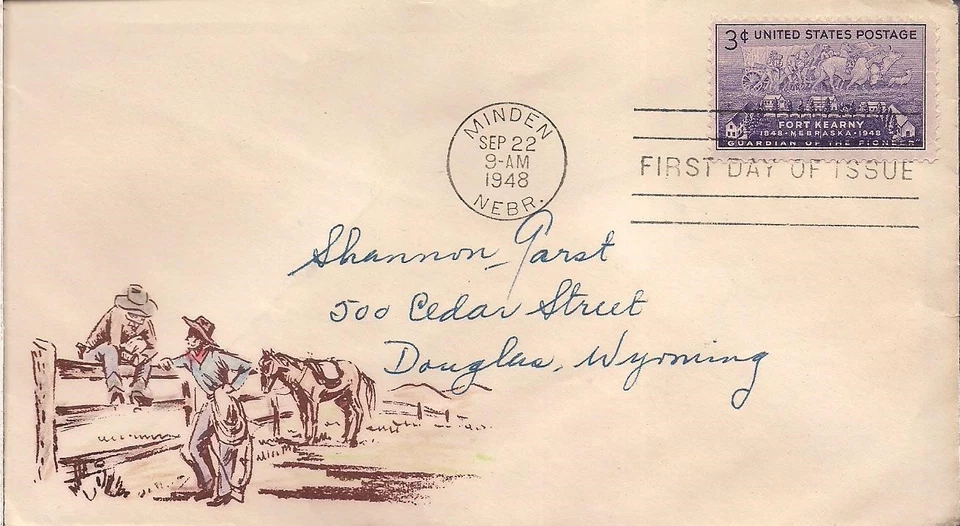 3¢ UNITED STATES POSTAGE
FORT KEARNY
1848·NEBRASKA·1948
GUARDIAN OF THE PIONEER
MINDEN
SEP 22
9-AM
1948
NEBR.
FIRST DAY OF ISSUE
Shannon Garst
500 Cedar Street
Douglas, Wyoming